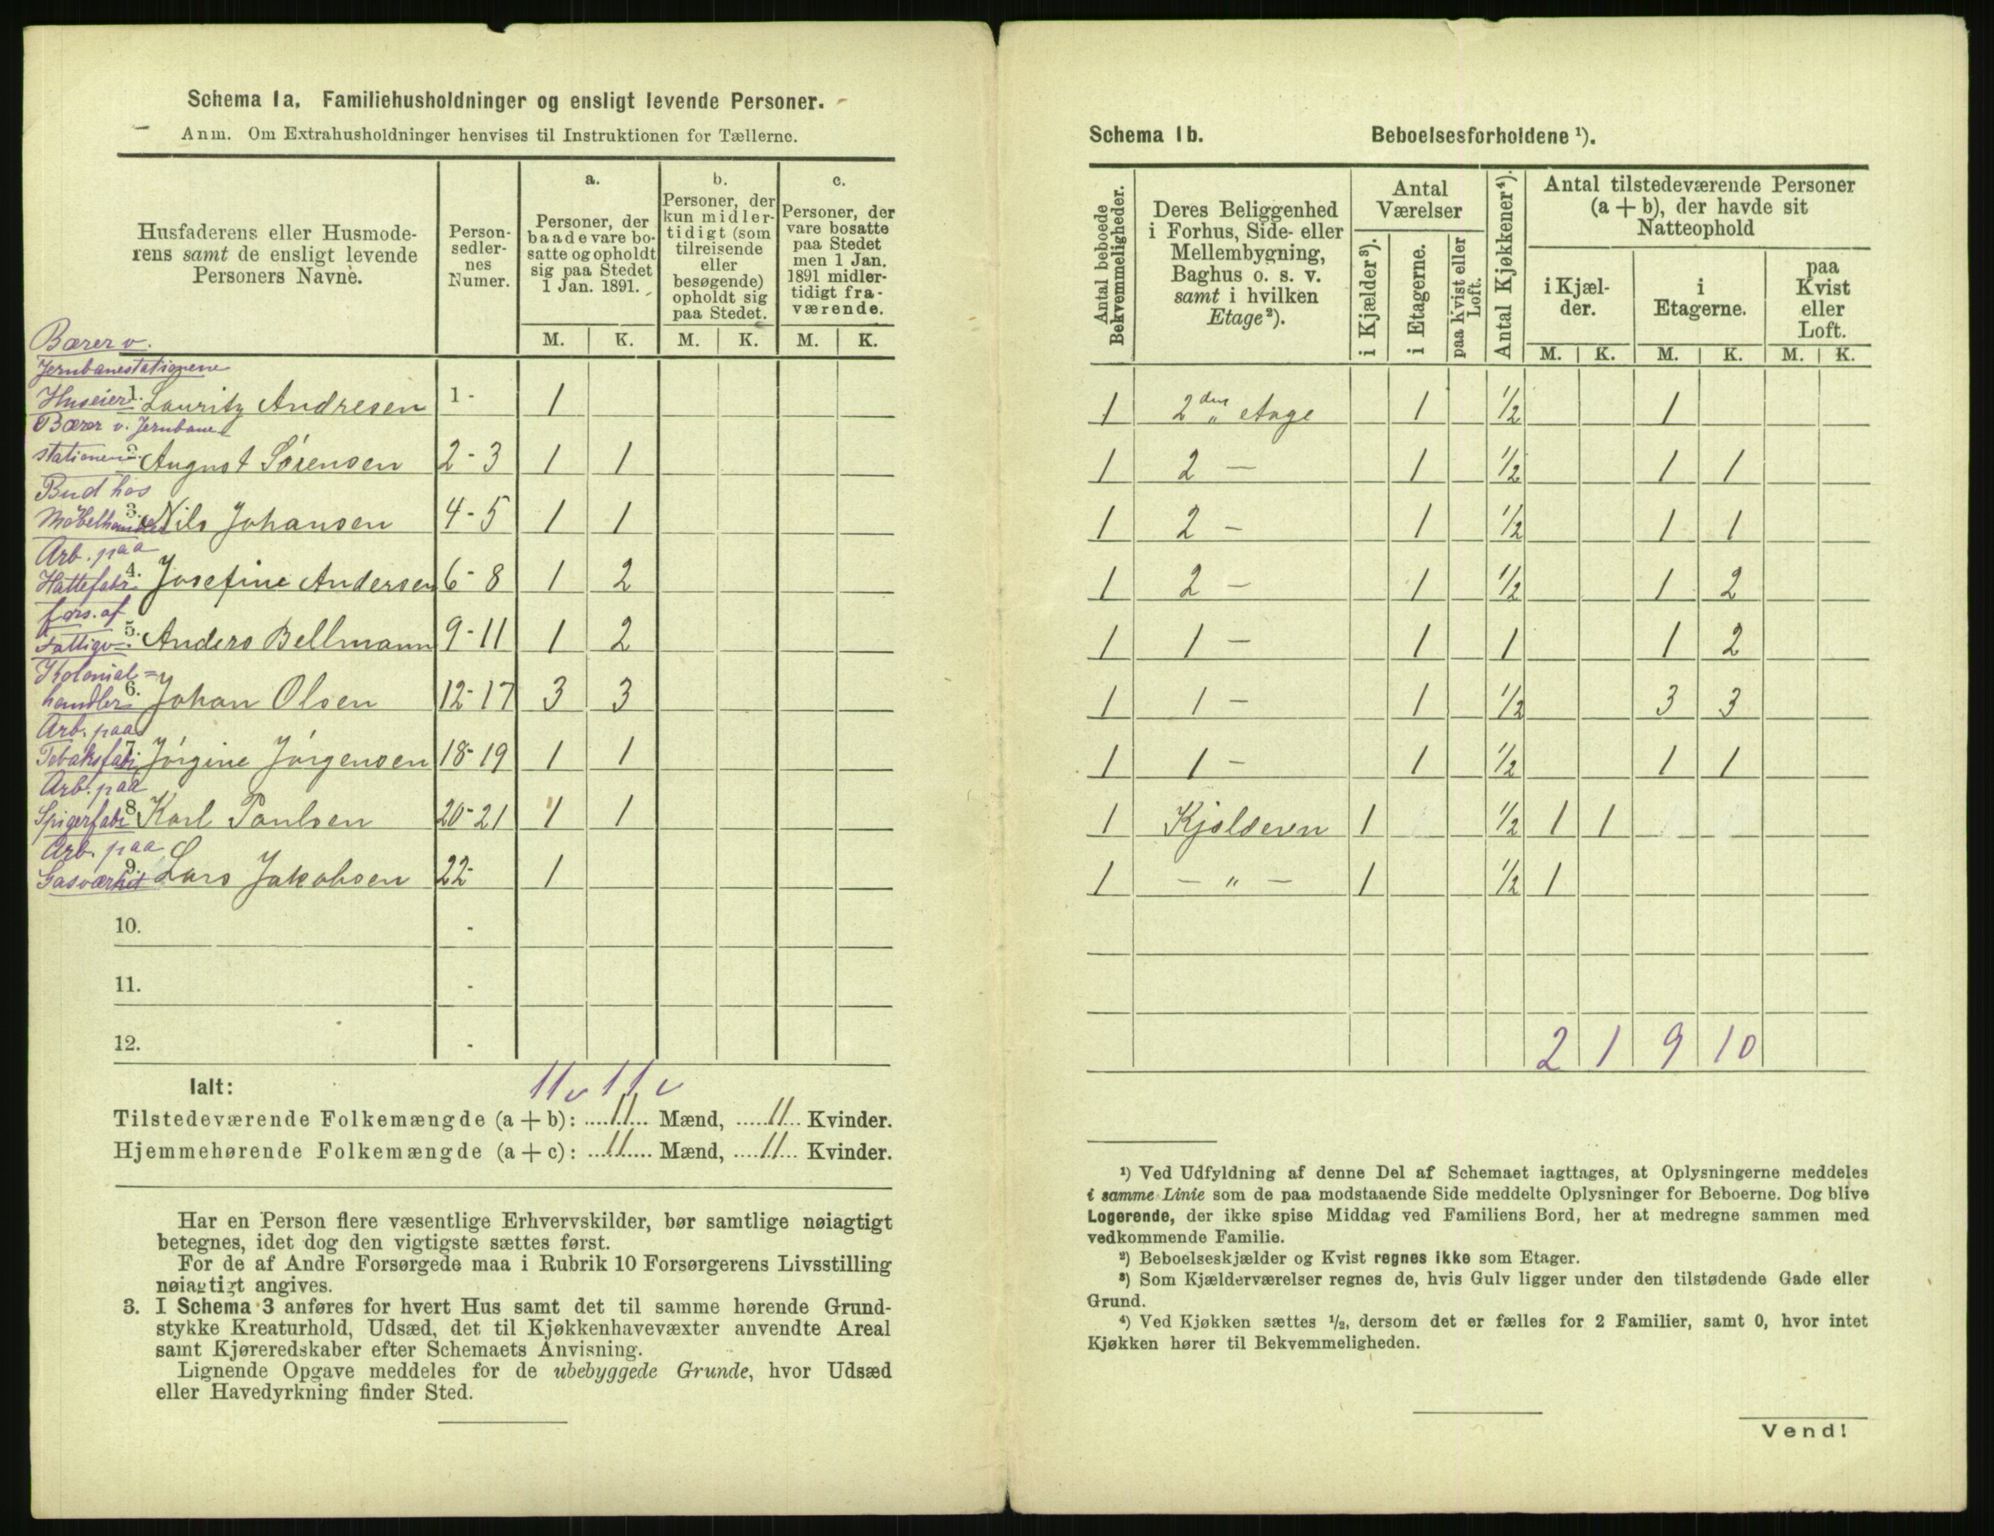 Schema 1a. Familiehusholdninger og ensligt levende Personer.
Anm. Om Extrahusholdninger henvises til Instruktionen for Tællerne.
Husfaderens eller Husmode-
rens samt de ensligt levende
Personers Navne.
Person-
sedler-
nes
Numer.
a.
Personer, der
baade vare bo-
satte og opholdt
sig paa Stedet
1 Jan. 1891.
b.
Personer, der
kun midler-
tidigt (som
tilreisende
eller
besøgende)
opholdt sig
paa Stedet.
c.
Personer, der
vare bosatte
paa Stedet
men 1 Jan.
1891 midler-
tidigt fra-
værende.
M. K. M. K. M. K.
Bærer v.
Jernbanestationene
Huseier 1. Lauritz Andresen 1 - 1
Bærer v. Jernbane
stationen 2. August Sörensen 2-3 1 1
Bud hos
Møbelhandler 3. Nils Johansen 4-5 1 1
Arb. paa
Hattefabr 4. Josefine Andersen 6-8 1 2
fors. af
Fattigv 5. Anders Bellmann 9-11 1 2
Kolonial=
handler 6. Johan Olsen 12-17 3 3
Arb. paa
Tobaksfabr 7. Jörgine Jörgensen 18-19 1 1
Arb. paa
Spigerfabr 8. Karl Paulsen 20-21 1 1
Arb. paa
Gasværket 9. Lars Jakobsen 22- 1
10. -
11. -
12. -
Ialt: 11 v 11 v
Tilstedeværende Folkemængde (a + b): 11 Mænd, 11 Kvinder.
Hjemmehørende Folkemængde (a + c): 11 Mænd, 11 Kvinder.
Har en Person flere væsentlige Erhvervskilder, bør samtlige nøiagtigt
betegnes, idet dog den vigtigste sættes først.
For de af Andre Forsørgede maa i Rubrik 10 Forsørgerens Livsstilling
nøiagtigt angives.
3. I Schema 3 anføres for hvert Hus samt det til samme hørende Grund-
stykke Kreaturhold, Udsæd, det til Kjøkkenhavevæxter anvendte Areal
samt Kjøreredskaber efter Schemaets Anvisning.
Lignende Opgave meddeles for de ubebyggede Grunde, hvor Udsæd
eller Havedyrkning finder Sted.
Schema 1b. Beboelsesforholdene ¹).
Antal beboede
Bekvemmeligheder.
Deres Beliggenhed
i Forhus, Side- eller
Mellembygning,
Baghus o. s. v.
samt i hvilken
Etage²).
Antal
Værelser
i Kjælder³).
i Etagerne.
paa Kvist eller
Loft.
Antal Kjøkkener⁴).
Antal tilstedeværende Personer
(a + b), der havde sit
Natteophold
i Kjæl-
der.
i
Etagerne.
paa
Kvist
eller
Loft.
M. K. M. K. M. K.
1 2den „ Etage 1 ½ 1
1 2 — 1 ½ 1 1
1 2 — 1 ½ 1 1
1 2 — 1 ½ 1 2
1 1 — 1 1 1 2
1 1 — 1 ½ 3 3
1 1 — 1 ½ 1 1
1 Kjelderen 1 ½ 1 1
1 — „ — 1 ½ 1
2 1 9 10
¹) Ved Udfyldning af denne Del af Schemaet iagttages, at Oplysningerne meddeles
i samme Linie som de paa modstaaende Side meddelte Oplysninger for Beboerne. Dog blive
Logerende, der ikke spise Middag ved Familiens Bord, her at medregne sammen med
vedkommende Familie.
²) Beboelseskjælder og Kvist regnes ikke som Etager.
³) Som Kjælderværelser regnes de, hvis Gulv ligger under den tilstødende Gade eller
Grund.
⁴) Ved Kjøkken sættes ½, dersom det er fælles for 2 Familier, samt 0, hvor intet
Kjøkken hører til Bekvemmeligheden.
Vend!